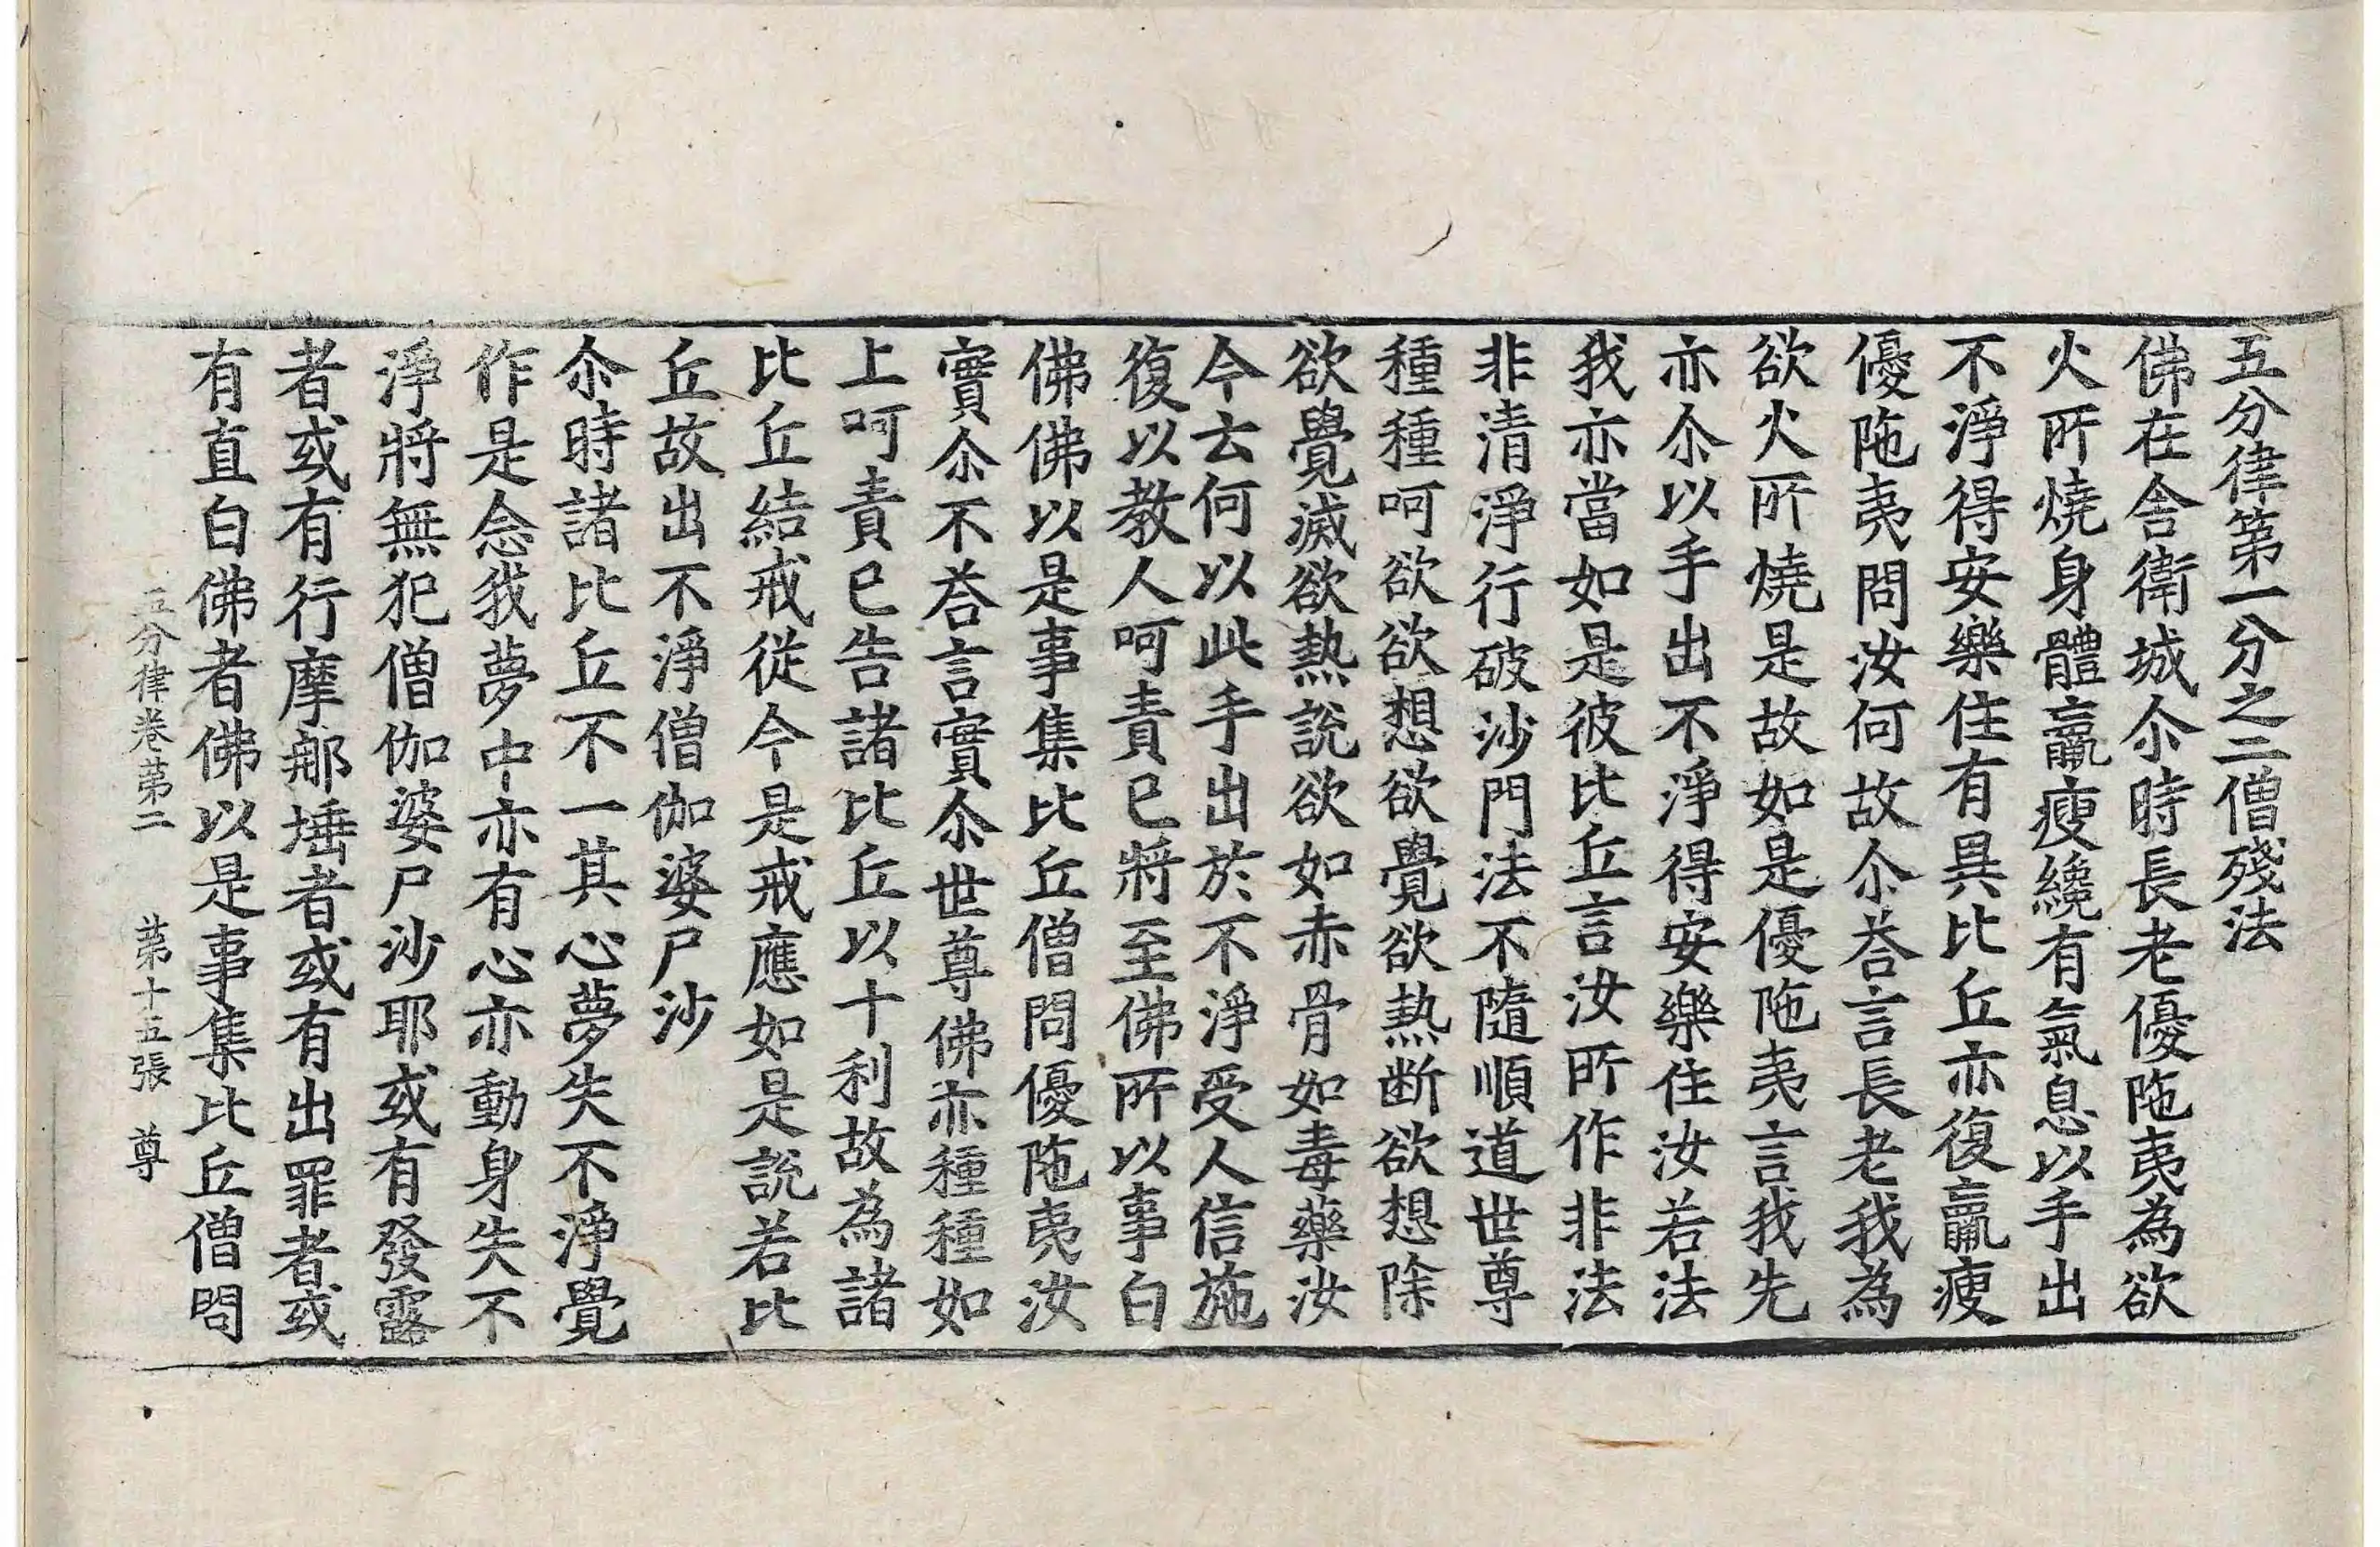 五分律第一分之二僧殘法
佛在舍衛城尒時長老優陁夷為欲
火所燒身體羸瘦纔有氣息以手出
不淨得安樂住有異比丘亦復羸瘦
優陁夷問汝何故尒荅言長老我為
欲火所燒是故如是優陁夷言我先
亦尒以手出不淨得安樂住汝若法
我亦當如是彼比丘言汝所作非法
非清淨行破沙門法不隨順道世尊
種種呵欲欲想欲覺欲熱断欲想除
欲覺滅欲熱說欲如赤骨如毒藥汝
今云何以此手出於不淨受人信施
復以教人呵責已將至佛所以事白
佛佛以是事集比丘僧問優陁夷汝
實尒不荅言實尒世尊佛亦種種如
上呵責已告諸比丘以十利故為諸
比丘結戒從今是戒應如是說若比
丘故出不淨僧伽婆尸沙
尒時諸比丘不一其心夢失不淨覺
作是念我夢中亦有心亦動身失不
淨將無犯僧伽婆尸沙耶或有發露
者或有行摩那埵者或有出罪者或
有直白佛者佛以是事集比丘僧問
五分律卷第二 第十五張 尊